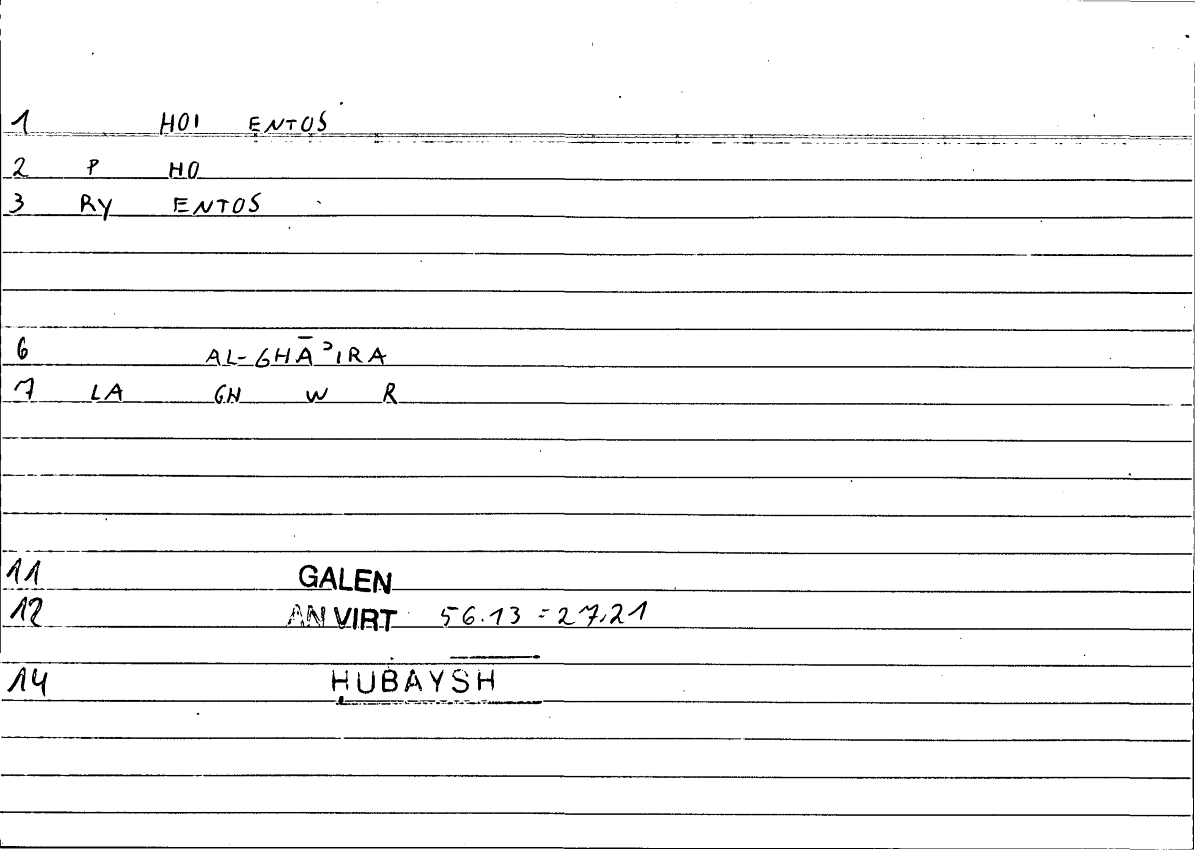 1 HOI ENTOS
2 P HO
3 RY ENTOS
6 AL-GHĀʾIRA
7 LA GH W R
11 GALEN
12 AN VIRT 56.13 = 27,21
14 HUBAYSH